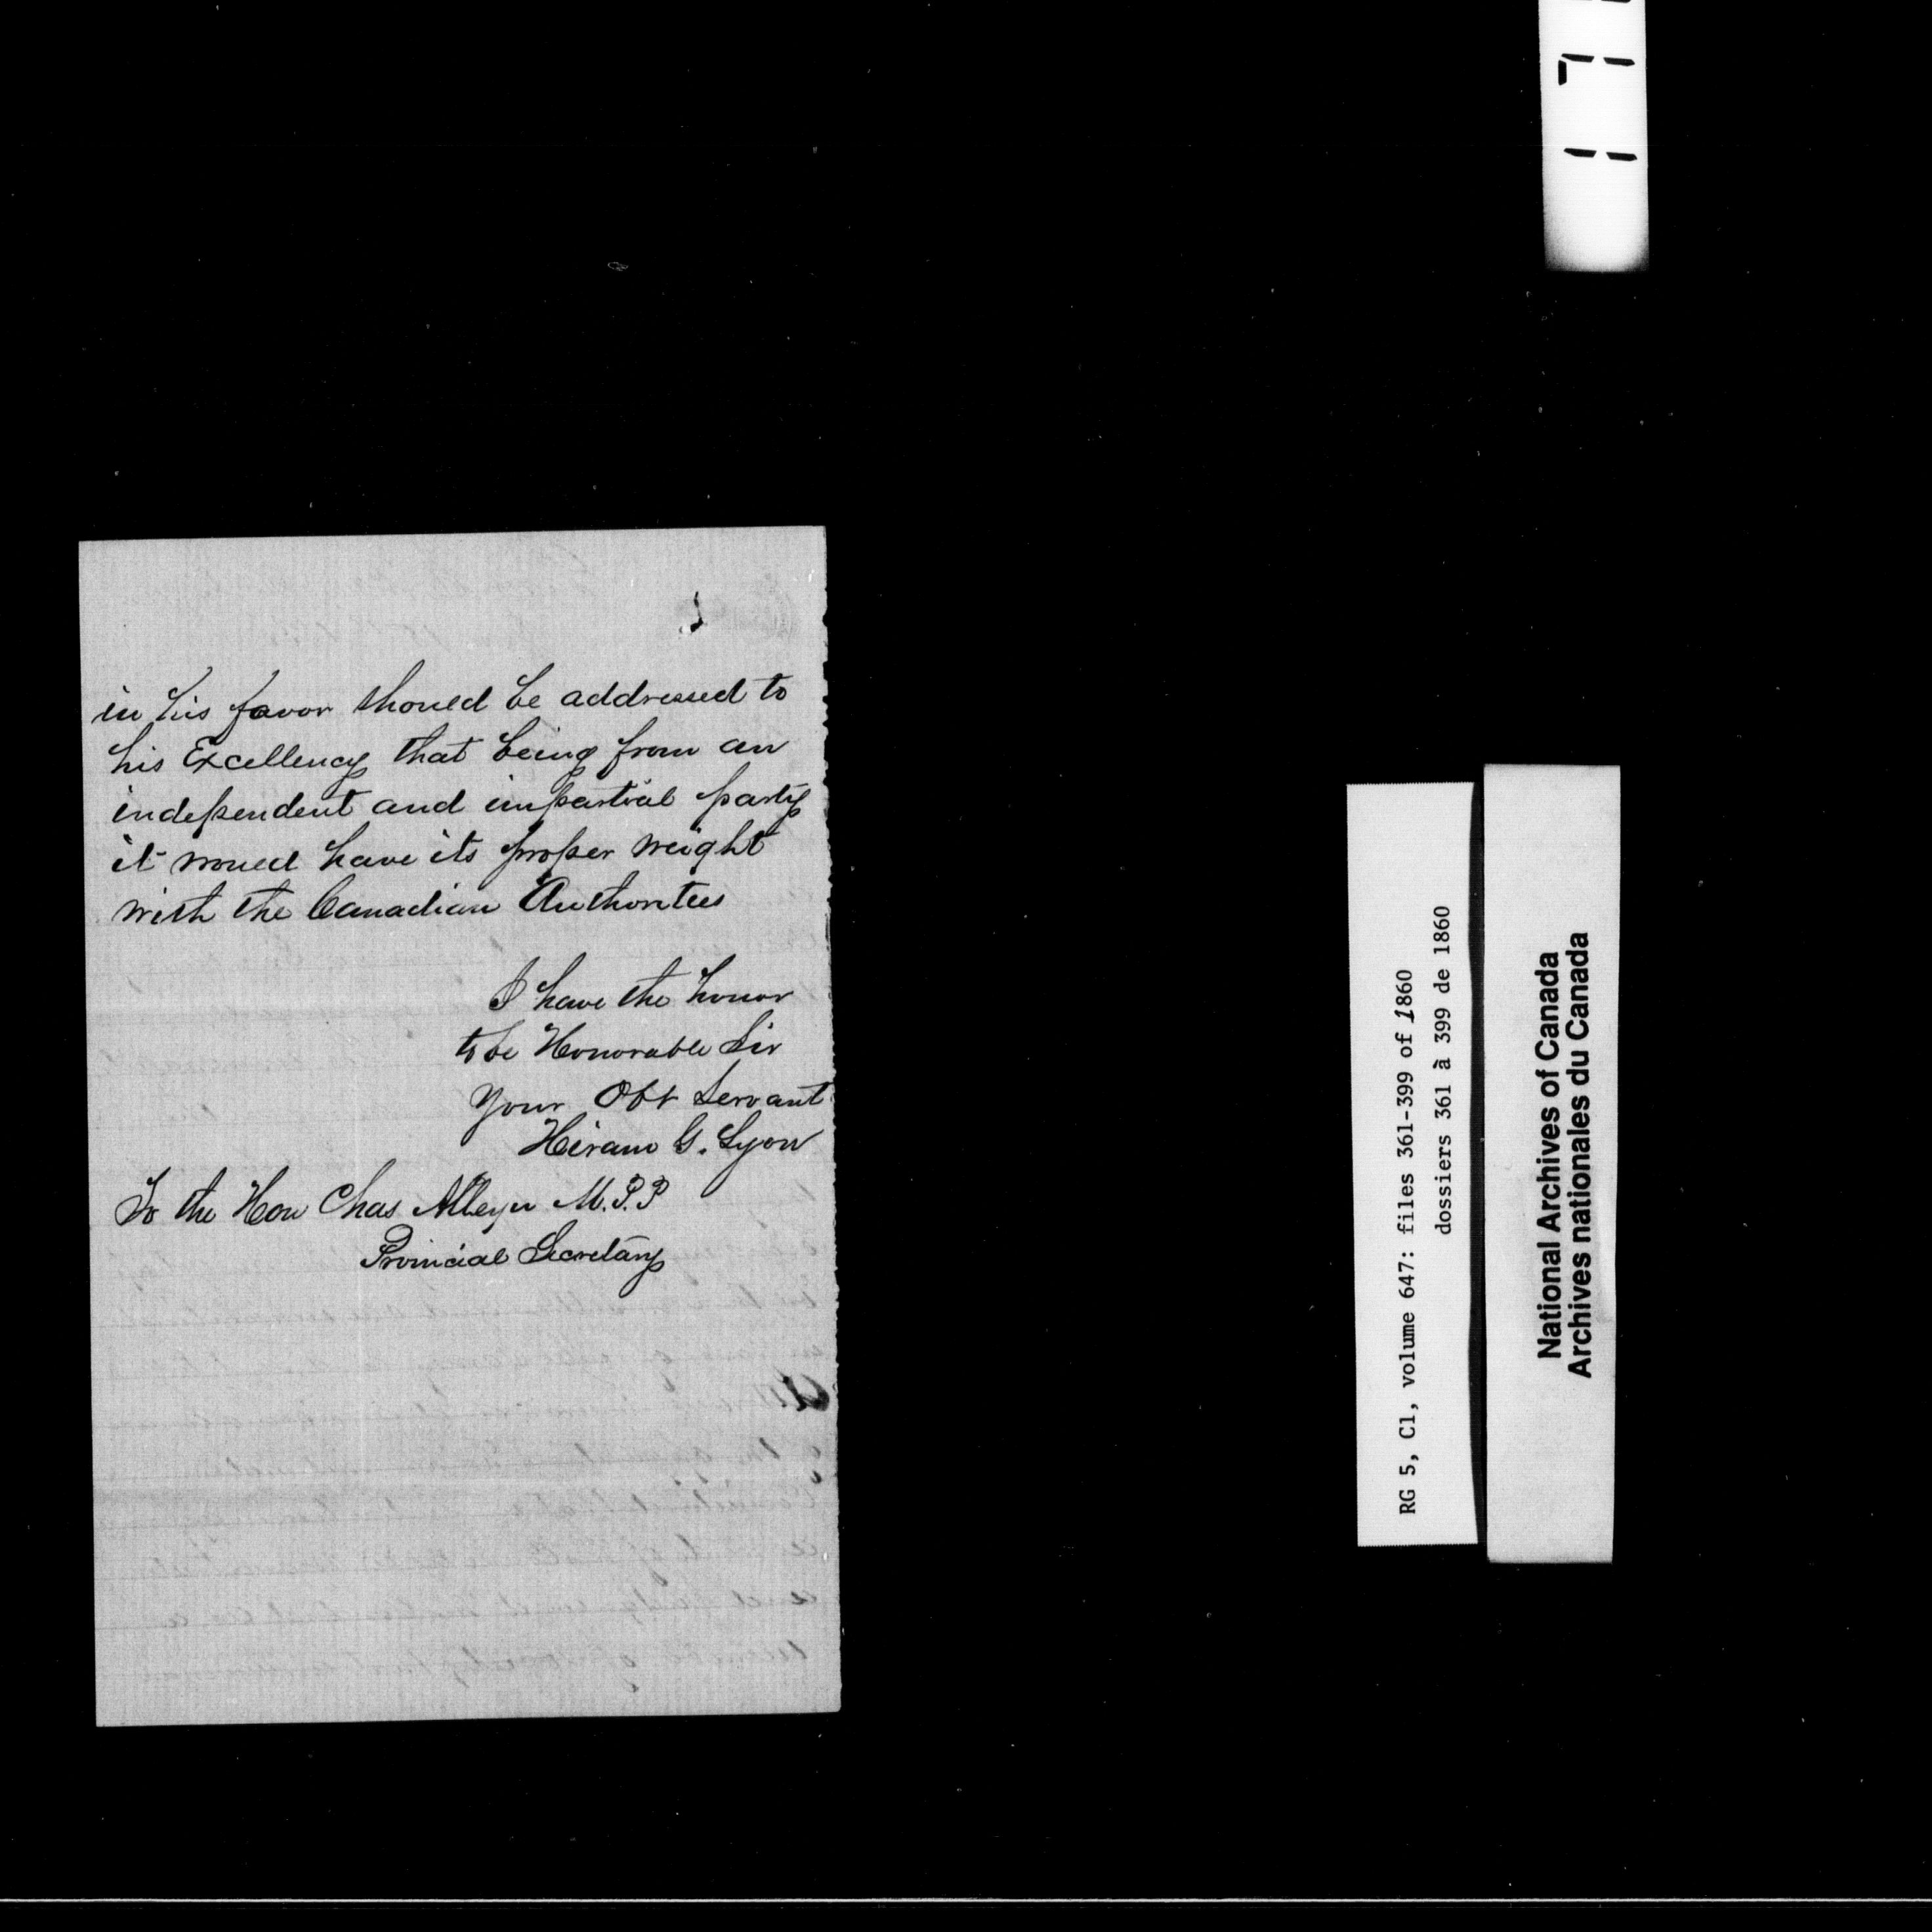 in his favor should be addressed to
his Excellency that being from an
independent and impartial party
it would have its proper weight
with the Canadian Authorities
I have the honor
to be Honorable Sir
Your Obt Servant
Hiram G. Lyon
To the Hon Chas Alleyn M.P.P
Provincial Secretary
RG 5, C1, volume 647: files 361-399 of 1860
dossiers 361 à 399 de 1860
National Archives of Canada
Archives nationales du Canada